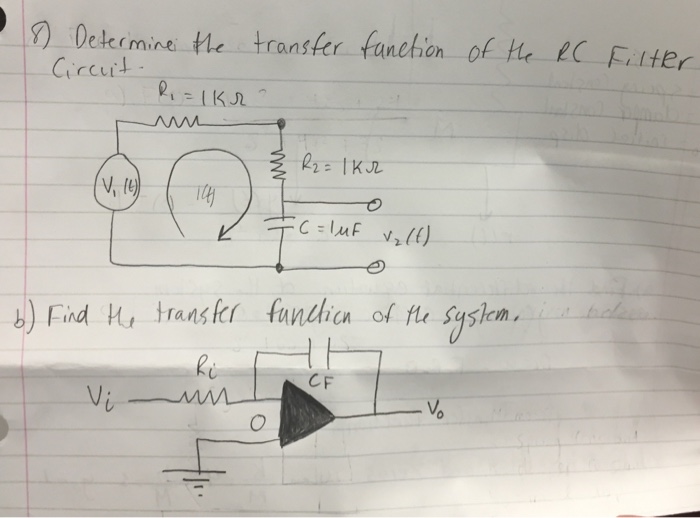 8) Determine the transfer function of the RC Filter
Circuit.
R₁ = 1KΩ
R₂ = 1KΩ
V₁(t)
i(t)
C = 1μF
v₂(t)
b) Find the transfer function of the system.
Ri
CF
Vi
Vo
O